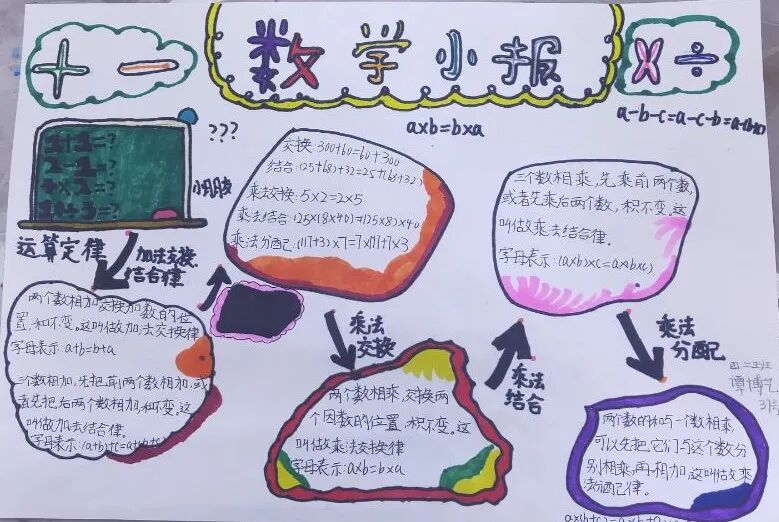 + - 数学小报 × ÷
a×b=b×a
a-b-c=a-c-b=
1+1=?
???
运算定律
加法交换
结合律
两个数相加交换加数的位
置,和不变。这叫做加法交换律
字母表示:a+b=b+a
三个数相加,先把前两个数相加,或
者先把后两个数相加,和不变。这
叫做加法结合律。
字母表示:(a+b)+c=
交换:300+60=60+300
结合:(25+68)+32=25+(68+32)
乘法交换:5×2=2×5
乘法结合:(25×(8×40)=(125×8)×40
乘法分配:(117+3)×7=7×117+7×3
乘法
交换
两个数相乘,交换两
个因数的位置,积不变。这
叫做乘法交换律
字母表示:a×b=b×a
乘法
结合
三个数相乘,先乘前两个数,
或者先乘后两个数,积不变。这
叫做乘法结合律。
字母表示:(a×b)×c=a×(b×c)
乘法
分配
四二班
谭博
两个数的和与一个数相乘,
可以先把它们与这个数分
别相乘,再相加,这叫做乘
法分配律。